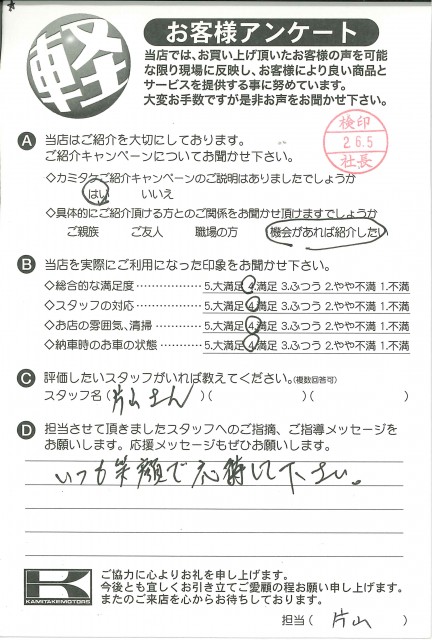 軽
お客様アンケート
当店では、お買い上げ頂いたお客様の声を可能
な限り現場に反映し、お客様により良い商品と
サービスを提供する事に努めています。
大変お手数ですが是非お声をお聞かせ下さい。
検印
26.5
社長
A 当店はご紹介を大切にしております。
ご紹介キャンペーンについてお聞かせ下さい。
◇カミタケご紹介キャンペーンのご説明はありましたでしょうか
はい いいえ
◇具体的にご紹介頂ける方とのご関係をお聞かせ頂けますでしょうか
ご親族 ご友人 職場の方 機会があれば紹介したい
B 当店を実際にご利用になった印象をお聞かせ下さい。
◇総合的な満足度………………5.大満足 4.満足 3.ふつう 2.やや不満 1.不満
◇スタッフの対応………………5.大満足 4.満足 3.ふつう 2.やや不満 1.不満
◇お店の雰囲気、清掃…………5.大満足 4.満足 3.ふつう 2.やや不満 1.不満
◇納車時のお車の状態…………5.大満足 4.満足 3.ふつう 2.やや不満 1.不満
C 評価したいスタッフがいれば教えてください。(複数回答可)
スタッフ名(片山さん)( )( )
D 担当させて頂きましたスタッフへのご指摘、ご指導メッセージを
お願いします。応援メッセージもぜひお願いします。
いつも笑顔で応待して下さい。
K
KAMITAKEMOTORS
ご協力に心よりお礼を申し上げます。
今後とも宜しくお引き立てご愛顧の程お願い申し上げます。
またのご来店を心からお待ちしております。
担当( 片山 )